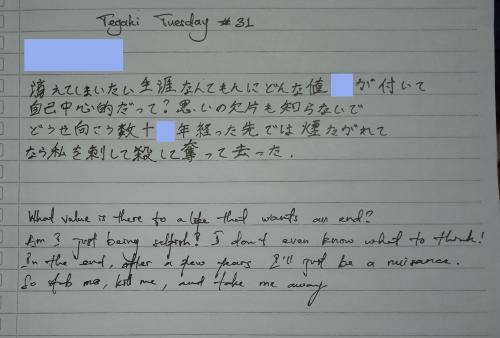 Tegaki Tuesday #31
消えてしまいたい生涯なんてもんにどんな値 が付いて
自己中心的だって?思いの欠片も知らないで
どうせ向こう数十 年経った先では煙たがれて
なら私を刺して殺して奪って去った.
What value is there to a life that wants an end?
Am I just being selfish? I don't even know what to think!
In the end, after a few years I'll just be a nuisance.
So stab me, kill me, and take me away